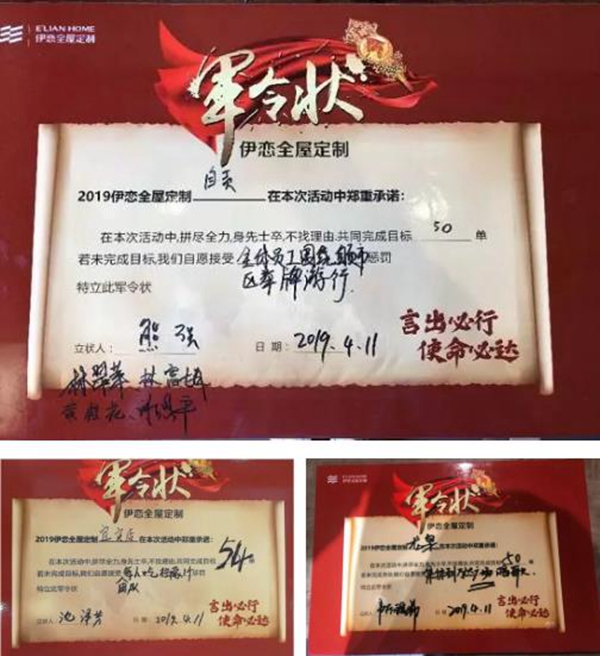 E'LIAN HOME
伊恋全屋定制
军令状
伊恋全屋定制
2019伊恋全屋定制 自贡 在本次活动中郑重承诺:
在本次活动中,拼尽全力,身先士卒,不找理由,共同完成目标 50 单
若未完成目标,我们自愿接受 全体员工围绕 惩罚
区举牌游行
特立此军令状
立状人: 熊强 日期: 2019.4.11
言出必行
使命必达
林
军令状
伊恋全屋定制
2019伊恋全屋定制 在本次活动中郑重承诺:
在本次活动中,拼尽全力,身先士卒,不找理由,共同完成目标 54 单
若未完成目标,我们自愿接受 每人吃 惩罚
特立此军令状
立状人: 池泽芳 日期: 2019.4.11
言出必行
使命必达
E'LIAN HOME
伊恋全屋定制
军令状
伊恋全屋定制
2019伊恋全屋定制 在本次活动中郑重承诺:
在本次活动中,拼尽全力,身先士卒,不找理由,共同完成目标 50 单
若未完成目标,我们自愿接受
特立此军令状
立状人: 日期: 2019.4.11
言出必行
使命必达